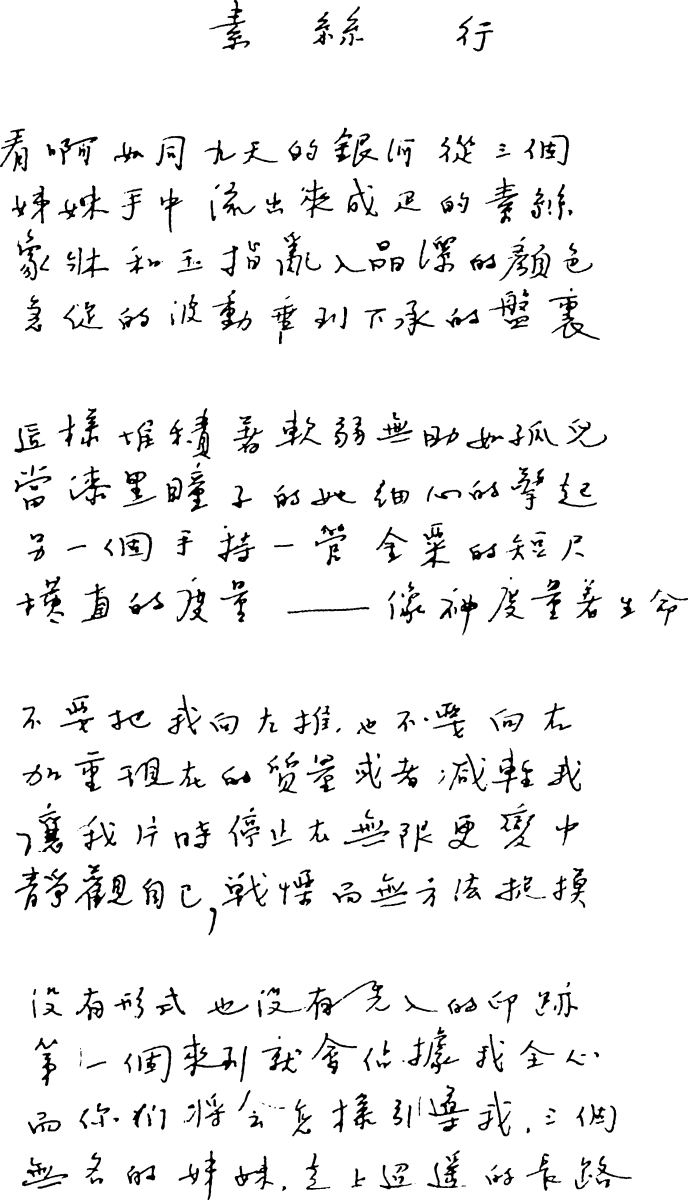 素絲行
看啊如同九天的銀河從三個
姊妹手中流出來成疋的素絲
象牀和玉指亂入晶瀅的顏色
急促的波動垂到下承的盤裏
這樣堆積著軟弱無助如孤兒
當漆黑瞳子的她細心的擎起
另一個手持一管金粟的短尺
橫直的度量——像神度量著生命
不要把我向左推.也不要向右
加重現在的質量或者減輕我
讓我片時停止在無限更變中
靜觀自己,戰慄而無方法捉摸
沒有形式也沒有先入的印跡
第一個來到就會佔據我全心
而你們將會怎樣引導我.三個
無名的姊妹.走上迢遙的長路